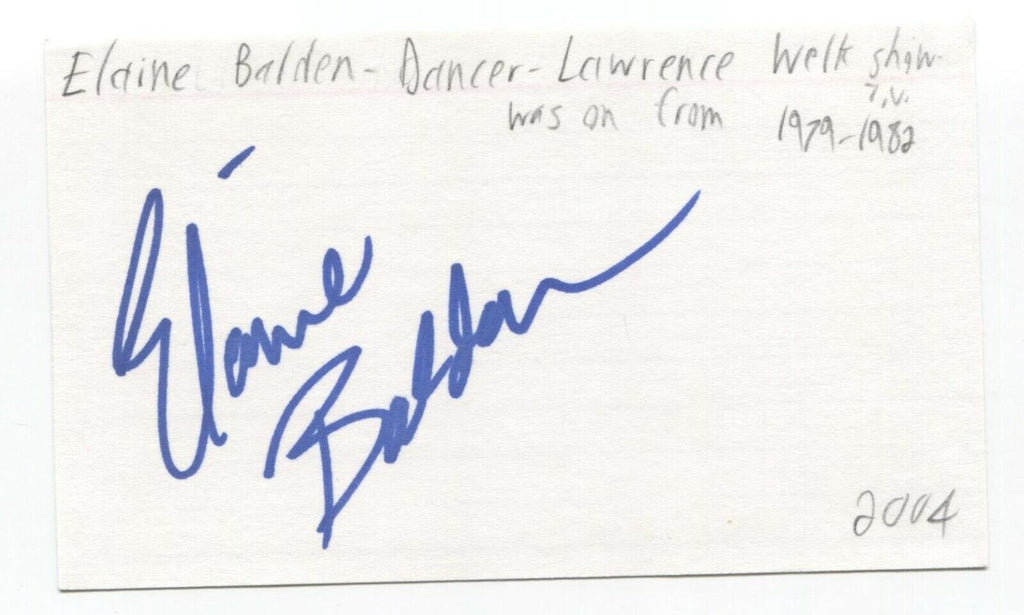 Elaine Balden - Dancer - Lawrence Welk show.
T.V.
was on from 1979-1982
Elaine
Balden
2004